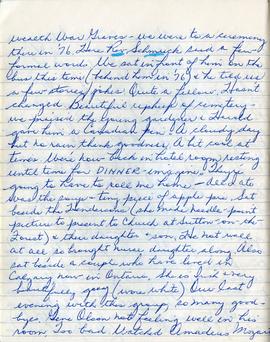 wealth War Graves - we were to a ceremony
there in '76. Hans Rev Schmuck said a few
formal words. We sat in front of him on the
bus this time (behind him in '76) & he tied us
a few stories, jokes. Quite a fellow, hasn't
changed. Beautiful upkeep of cemetery -
we praised the young gardener & Harold
gave him a Canadian pin. A cloudy day
but no rain thank goodness. A bit cool at
times. We're now back in hotel room resting
until time for DINNER - imagine! They're
going to have to roll me home - all I ate
was the soup & tiny piece of apple pie. Sat
beside the Hendersons (she made needle point
picture to present to Church at Sutton-on-the-
Forest) & their daughter & son. He not well
at all so brought nurse daughter along. Also
sat beside a couple who have lived in
Calgary now in Ontario. She is fish
beautifully gray (now white). Our last
evening with this group, so many good-
byes. Gene Olson not feeling well in his
room. Too bad. Watched Amadeus Mozart